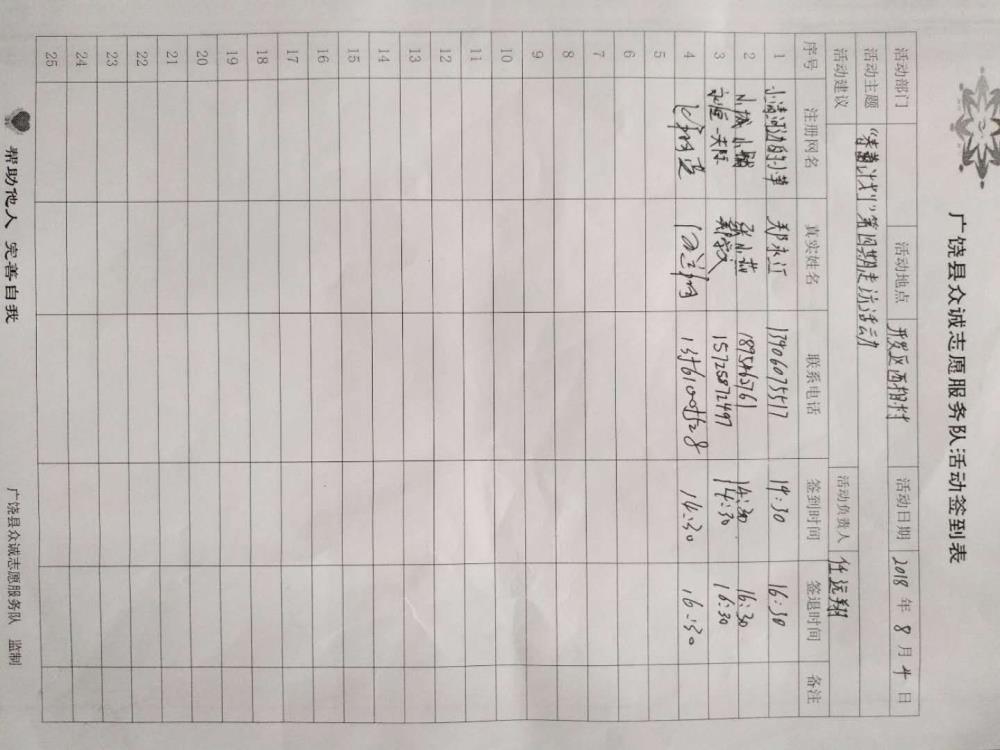 广饶县众诚志愿服务队活动签到表
活动部门 活动地点 开发区西相村 活动日期 2018 年 8 月 4 日
活动主题 “春蕾计划”第四期走访活动
活动建议 活动负责人 任远翔
序号 注册网名 真实姓名 联系电话 签到时间 签退时间 备注
1 小清河边的小草 郑永江 13906075517 14:30 16:30
2 小城小猫 张小茹 1895465761 14:30 16:30
3 永恒一天际 15725872497 14:30 16:30
4 13561005528 14:30 16:30
5
6
7
8
9
10
11
12
13
14
15
16
17
18
19
20
21
22
23
24
25
帮助他人 完善自我 广饶县众诚志愿服务队 监制